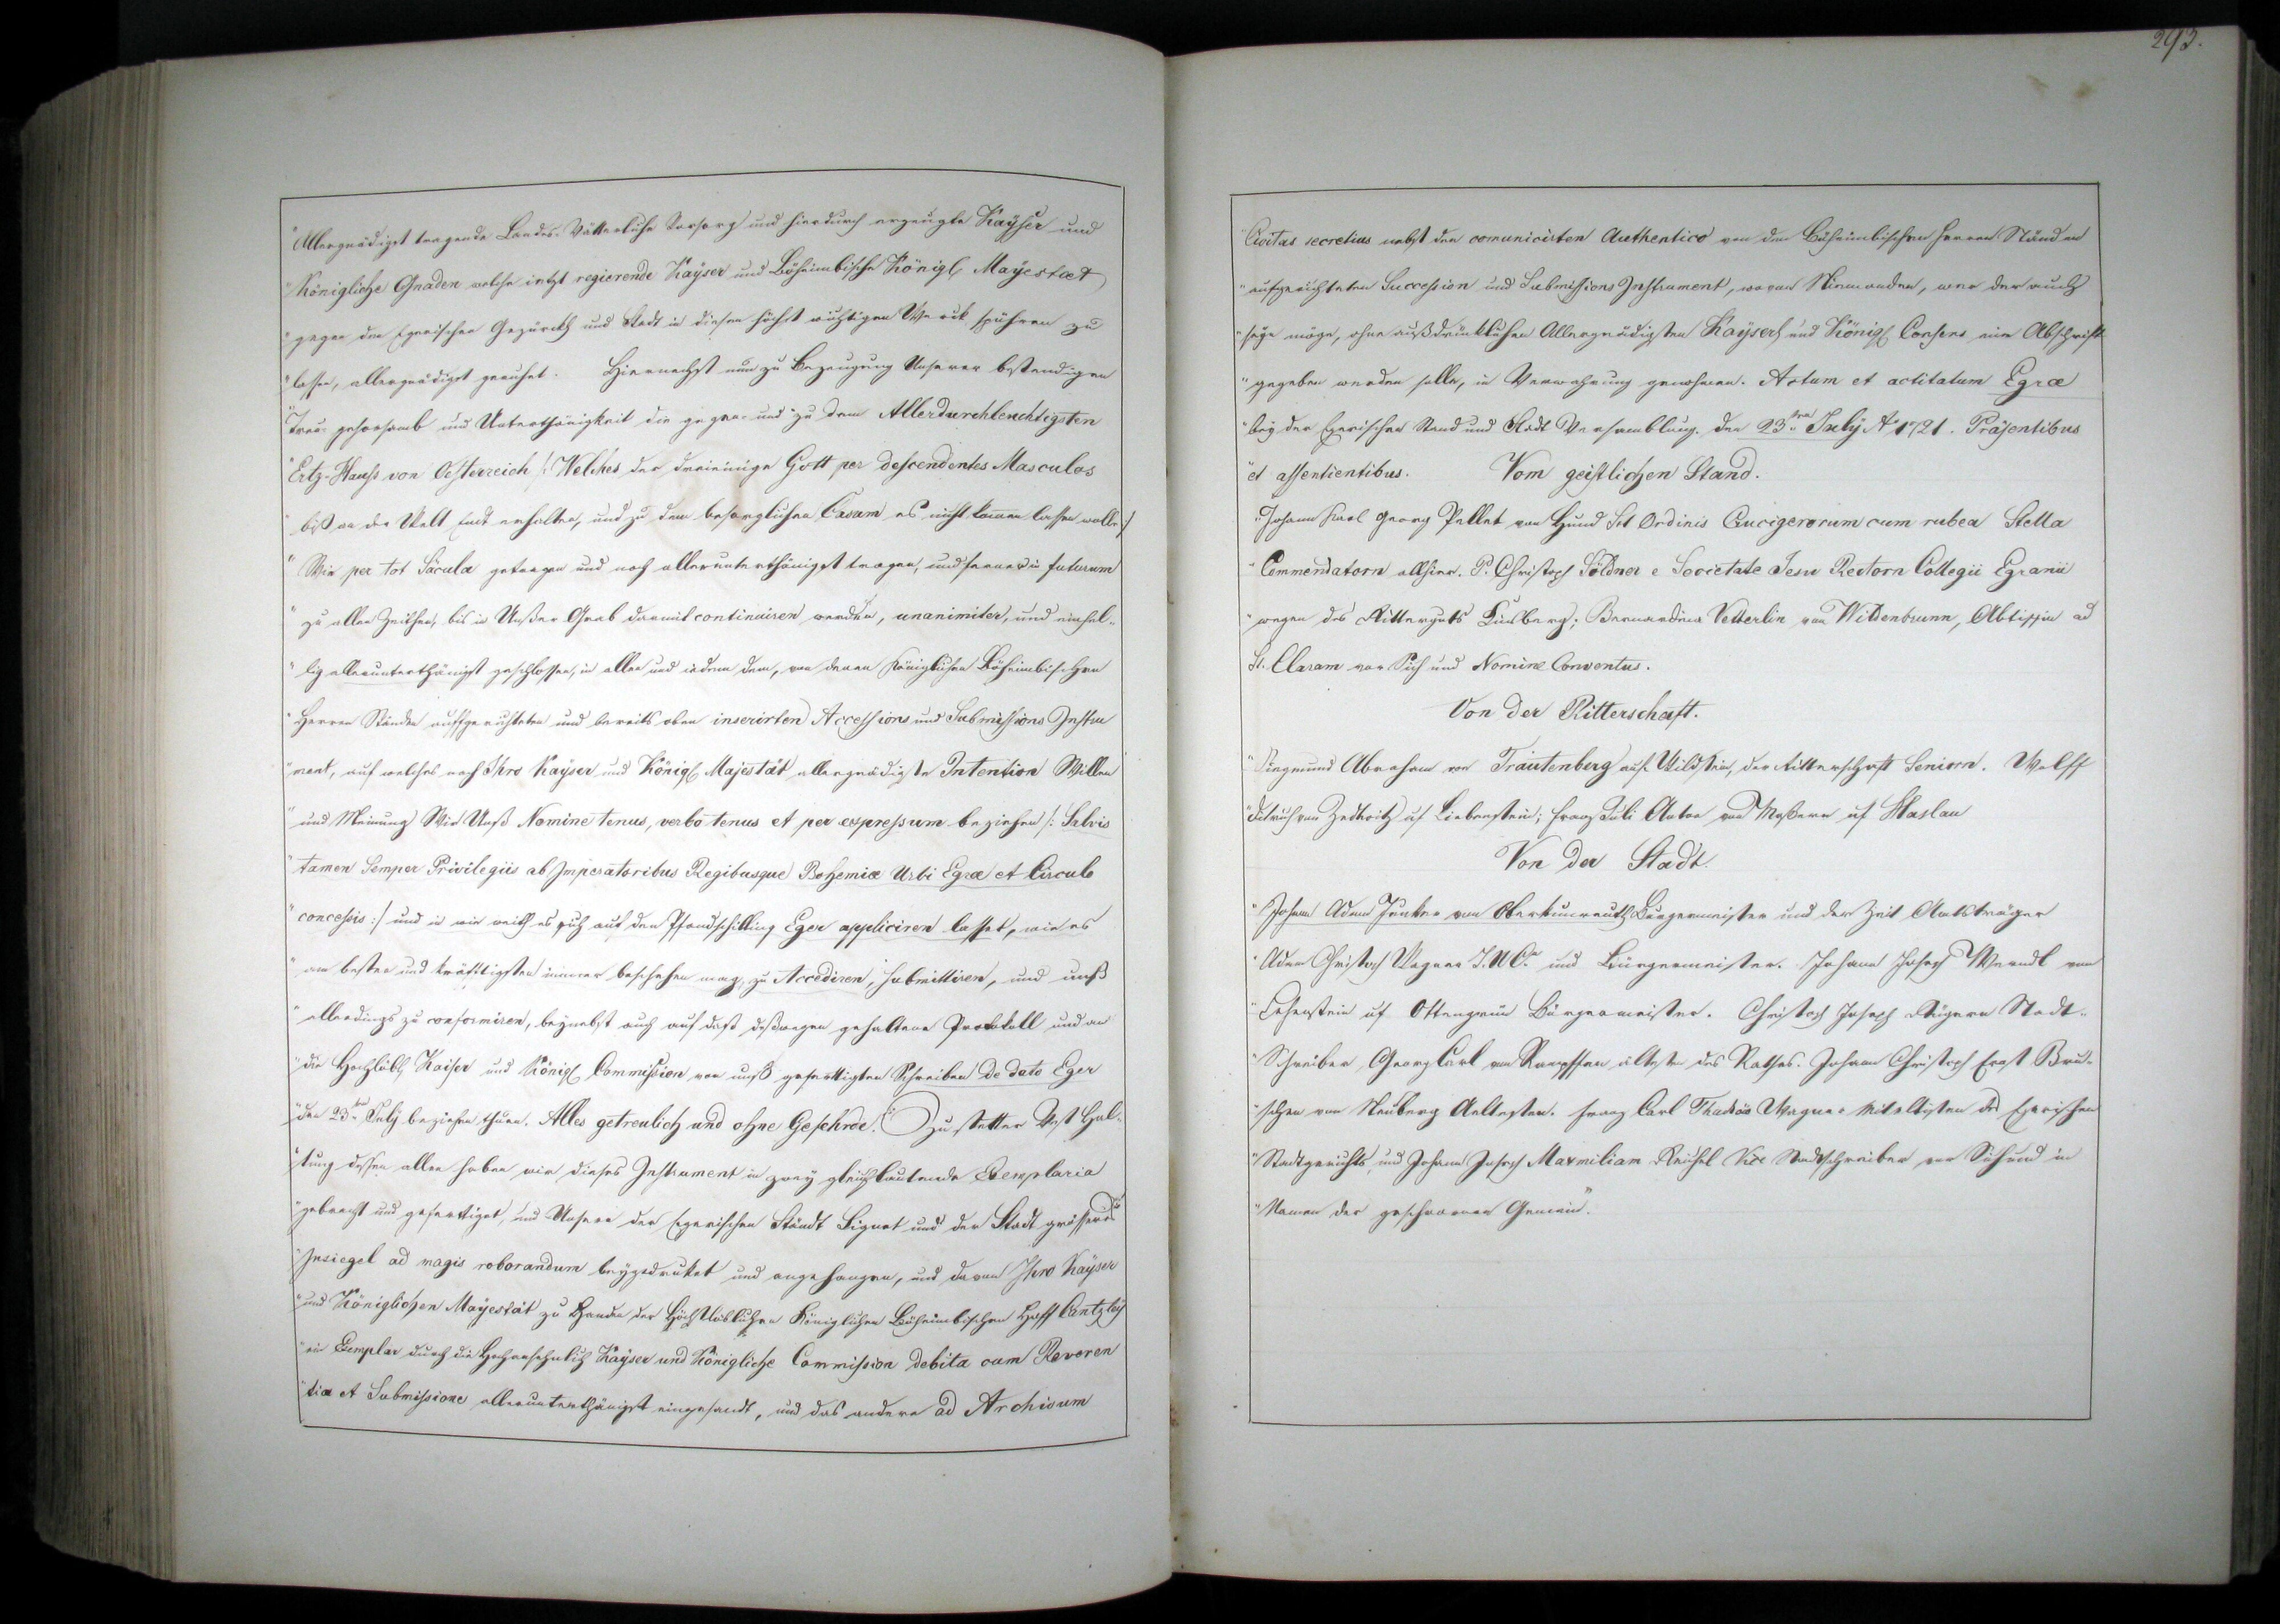 "Allergnädigst tragende Landes-Vätterliche Vorsorg und hierdurch erzeugte Kayser und
"Königliche Gnaden welche jetzt regierende Kayser und Böheimbische Königl. Mayestaet
"gegen den Egerischen Gezürckh und Stadt in diesen höchst wichtigen Werck spühren zu
"lassen, allergnädigst geruhet. Hiernechst nun zu Bezeugung Unserer bestendigen
"Treu- gehorsamb und Unterthänigkeit die gegen- und zu dem Allerdurchleuchtigsten
"Ertz-Hauss von Oesterreich /: Welches der dreieinige Gott per descendentes Masculos
"biß an der Welt End erhalten, und zu dem besorglichen Casum es nicht kommen lassen wolle :/
"Wir per tot Säcula getragen und noch allerunterthänigst tragen, und ferner in futurum
"zu allen Zeithen, bis in Unßer Grab darmit continuiren werden, unanimiter, und einhel-
"lig allerunterthänigst geschlossen, in allen und iedem dem, von denen Königlichen Böheimbischen
"Herren Ständen auffgerichteten und bereits oben inserirten Accessions und Submissions Instru
"ment, auf welches nach Ihro Kayser und Königl Majestät allergnädigste Intention Willen
"und Meinung Wir Unß Nomine tenus, verbo tenus et per expressum beziehen /: Salvis
"tamen Semper Privilegiis ab Imperatoribus Regibusque Bohemiæ Urbi Egræ et Circulo
"concessis :/ und in wie weith es sich auf den Pfandschilling Eger appliciren lasset, wie es
"am besten und kräfftigsten immer beschehen mag, zu Accediren, submittiren, und unß
"allerdings zu conformiren, beynebst auch auf daß deßwegen gehaltene Protokoll und an
"die Hochlöbl. Kaiser und Königl Commission von unß gefertigten Schreiben De dato Eger
"den 23ten July beziehen thuen. Alles getreulich und ohne Gefehrde. Zu stetter Vest Hal-
"tung dessen allen haben wir dieses Instrument in zwey gleichlautende Exemplaria
"gebracht und gefertiget, und Unsere der Egerischen Ständt Signet und der Stadt grössere
"Insiegel ad magis roborandum beygedruket und angehangen, und davon Ihro Kayser
"und Königlichen Mayestät zu Handen der Höchstlöblichen Königlichen Böheimbischen Hoff Cantzley
"ein Exemplar durch die Hochansehnlich Kayser und Königliche Commission debita cum Reveren
"tia et Submissione allerunterthänigst eingesandt, und das andere ad Archivum
293.
"Civitas secretius nebst den comunicirten Authentico von den Böheimbischen Herren Ständen
"aufgerichteten Succession und Submissions Instrument, wovon Niemanden, wer der auch
"seye möge, ohne außdrüklichen Allergnädigsten Kayserl und Königl Consens eine Abschrift
"gegeben werden solle, in Verwahrung genohmen. Actum et actitatum Egræ
"bey der Egerischen Stand und Stadt Versamblung. den 23ten July Ao 1721. Präsentibus
"et assentientibus. Vom geistlichen Stand.
"Johann Karl Georg Pellet von Hund Sct Ordinis Crucigerorum cum rubea Stella
"Commendatorn allhier. P. Christoph Söldner e Societate Jesu Rectorn Collegii Egranii
"wegen des Ritterguts Kinsberg; Bernardina Vetterlin von Wildenbrunn, Abtissin ad
St. Claram vor Sich und Nomine Conventus.
Von der Ritterschaft.
"Siegmund Abraham von Trautenberg auf Wildstein, der Ritterschafft Seniorn. Wolff
"Ditrich von Zedtwitz uf Liebenstein; Franz Anton von Moßern uf Haslau
Von der Stadt.
"Johann Adam Junker von Oberkunreuth Burgermeister und der Zeit Amtsträger
"Adam Christoph Wagner J.U.C. und Bürgermeister. Johann Joseph Werndl von
"Lehenstein uf Ottengrün Bürgermeister. Christoph Joseph Stadt-
"Schreiber Georg Carl von älteste des Rathes. Johann Christoph Ernst Bru-
"schen von Neuberg Aeltesten. Franz Carl Thadäa Wagner Miteltisten des Egerischen
"Stadtgerichts, und Johann Joseph Maxmiliam Reichel Vice Stadtschreiber vor Sich und in
"Namen der geschwornen Gemein".